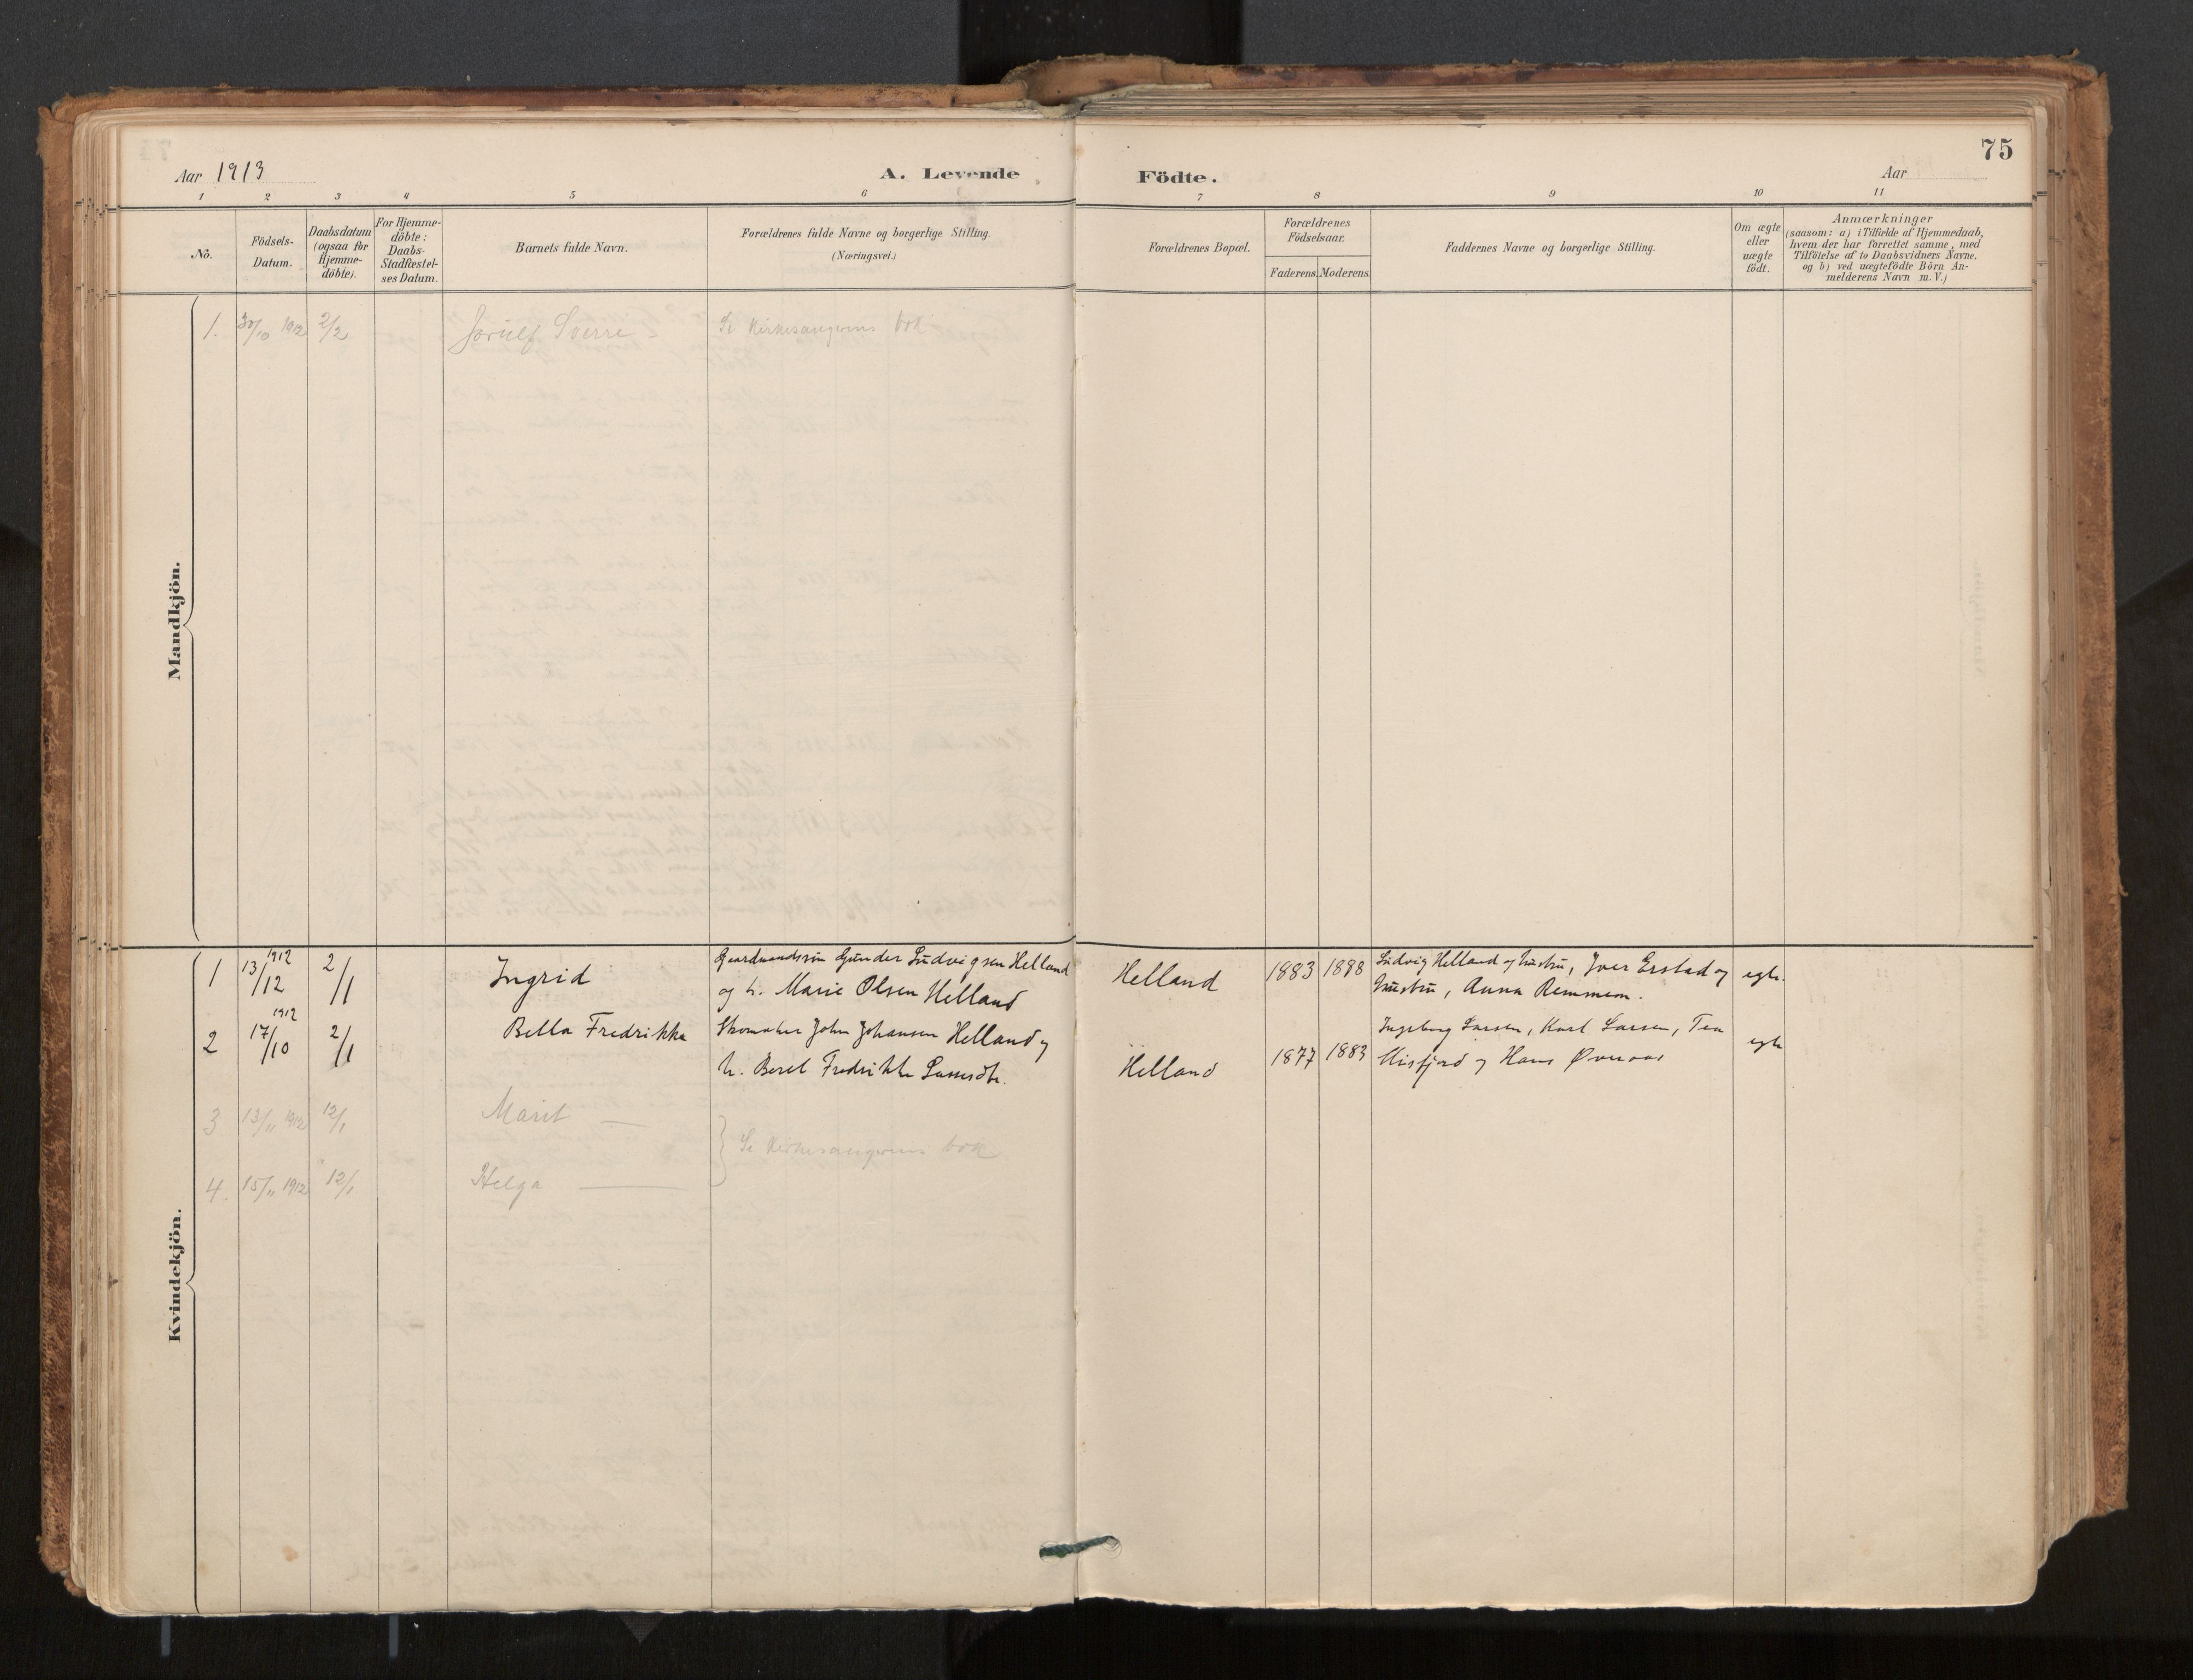 75
Aar 1913
A. Levende Födte.
Aar
1 2 3 4 5 6 7 8 9 10 11
No.
Födsels-
Datum.
Daabsdatum
(ogsaa for
Hjemme-
döbte).
For Hjemme-
döbte:
Daabs-
Stadfæstel-
ses Datum.
Barnets fulde Navn.
Forældrenes fulde Navne og borgerlige Stilling.
(Næringsvei.)
Forældrenes Bopæl.
Forældrenes
Födselsaar.
Faderens. Moderens.
Faddernes Navne og borgerlige Stilling.
Om ægte
eller
uægte
födt.
Anmærkninger
(saasom: a) i Tilfælde af Hjemmedaab,
hvem der har forrettet samme, med
Tilföielse af to Daabsvidners Navne,
og b) ved uægtefödte Börn An-
melderens Navn m.V.)
Mandkjön.
1. 30/10 1912 2/2 Sverre Se Kirkesangerens bok
Kvindekjön.
1 13/12 1912 2/1 Ingrid Gaardmandssön Gunder Ludvigsen Helland
og h. Marie Olsen Helland
Helland 1883 1898 Ludvig Helland og hustru, Iver Erstad og
hustru, Anna Remmem.
egte.
2 17/10 1912 2/1 Bella Fredrikka Skomaker John Johansen Helland og
h. Beret Fredrikke Larsesdtr.
Helland 1877 1883 Ingeborg Larsen, Karl Larsen, Tea
Misfjord og Hans Øveraas
egte
3 13/11 1912 12/1 Marit —
Se Kirkesangerens bok
4. 15/11 1912 12/1 Helga —